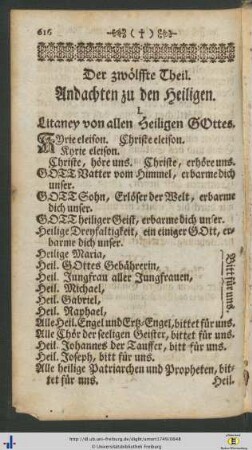 616 ( † )
Der zwölffte Theil.
Andachten zu den Heiligen.
I.
Litaney von allen Heiligen GOttes.
KYrie eleison. Christe eleison.
Kyrie eleison.
Christe, höre uns. Christe, erhöre uns.
GOTT Vatter vom Himmel, erbarme dich
unser.
GOTT Sohn, Erlöser der Welt, erbarme
dich unser.
GOTT heiliger Geist, erbarme dich unser.
Heilige Dreyfaltigkeit, ein einiger GOtt, er-
barme dich unser.
Heilige Maria,
Heil. GOttes Gebährerin,
Heil. Jungfrau aller Jungfrauen,
Heil. Michael,
Heil. Gabriel,
Heil. Raphael,
Bitt für uns.
Alle Heil. Engel und Ertz-Engel, bittet für uns.
Alle Chör der seeligen Geister, bittet für uns.
Heil. Johannes der Tauffer, bitt für uns.
Heil. Joseph, bitt für uns.
Alle heilige Patriarchen und Propheten, bit-
tet für uns. Heil.
© Universitätsbibliothek Freiburg